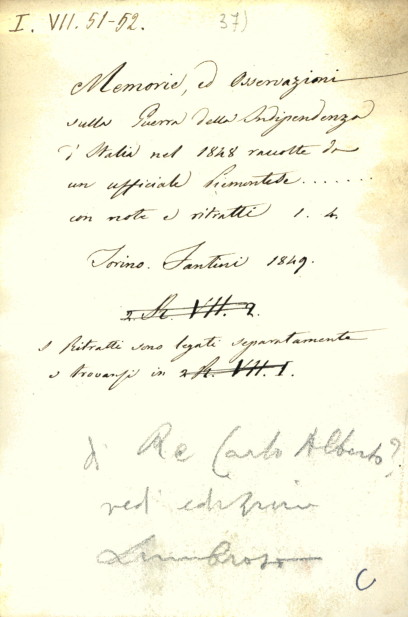 I. VII. 51-52. 37)
Memorie, ed Osservazioni
sulla Guerra della Indipendenza
d'Italia nel 1848 raccolte da
un ufficiale Piemontese.......
con note e ritratti 1. 4.
Torino. Fantini 1849.
2. R. VII. 2.
I Ritratti sono legati separatamente
e trovansi in 2 R. VII. 1.
di Re Carlo Alberto?
vedi edizione
Lumbroso
C